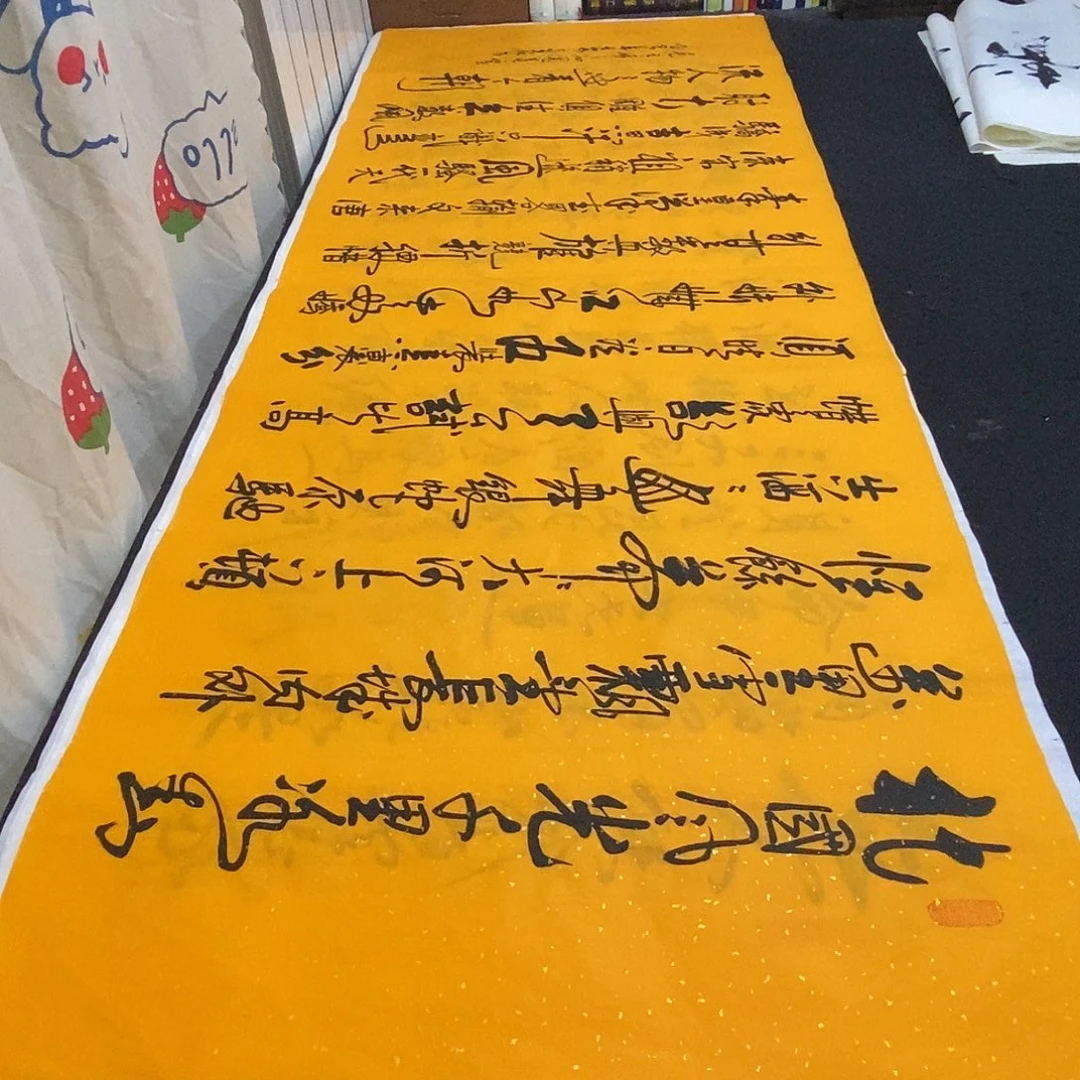 北國風光千里冰封
萬里雪飄望長城內外
惟餘莽莽大河上下頓
失滔滔山舞銀蛇原馳
蠟象欲與天公試比高
須晴日看紅裝素裹分
外妖嬈江山如此多嬌
引無數英雄競折腰惜
秦皇漢武略輸文采唐
宗宋祖稍遜風騷一代天
驕成吉思汗只識彎
弓射大雕俱往矣數風
流人物還看今朝